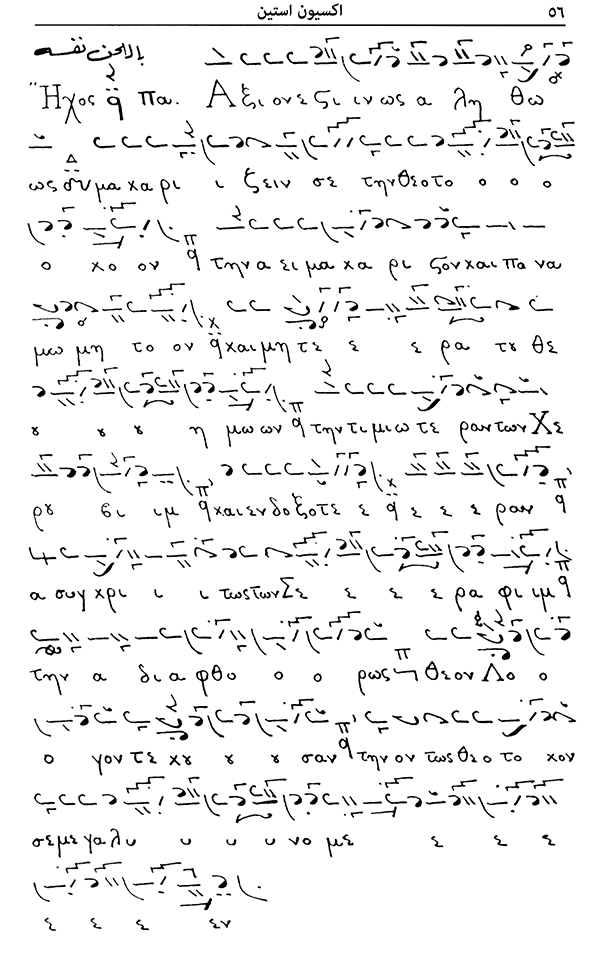 ٥٦ اكسيون استين
باللحن نفسه
Ἦχος q πα. Α ξι ον ε ϛι ιν ως α λη θω
ως μα κα ρι ι ζειν σε την θεο το ο ο ο
ο κο ον q την α ει μα κα ρι ζον και πα να
μω μη το ον q και μη τε ε ε ρα τȣ θε
ȣ ȣ ȣ η μω ων q την τι μι ω τε ραν των Χε
ρȣ βι ιμ q και εν δο ξο τε ε q ε ε ε ραν q
α συγ κρι ι ι τως των Σε ε ε ε ρα φι ιμ q
την α δι α φθο ο ο ρως θε ον Λο ο ο
ο γον τε κȣ ȣ ȣ σαν q την ον τως θε ο το κον
σε με γα λυ υ υ υ νο με ε ε ε
ε ε ε εν